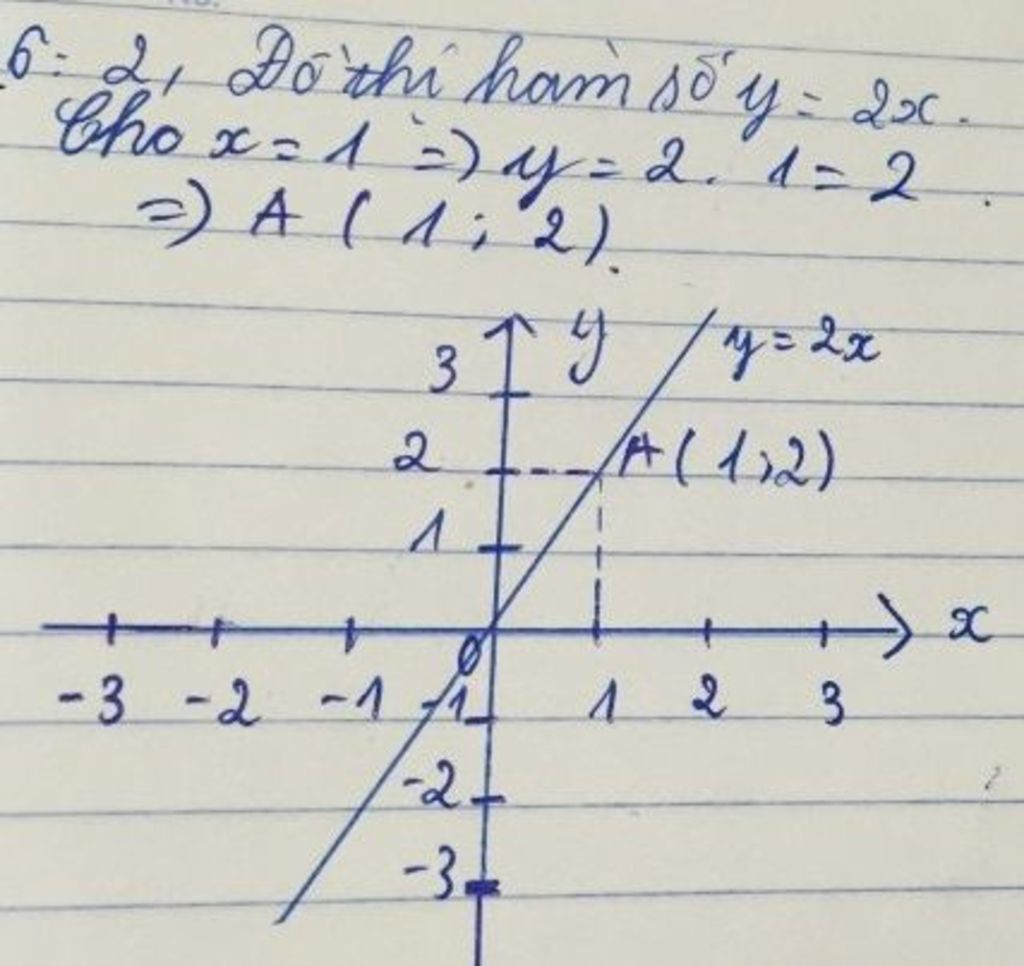 6: 2, Đồ thị hàm số y = 2x.
Cho x = 1 => y = 2. 1 = 2.
=> A ( 1 ; 2 ).
y
y = 2x
3
2
A ( 1 ; 2 )
1
x
O
-3 -2 -1 -1 1 2 3
-2
-3